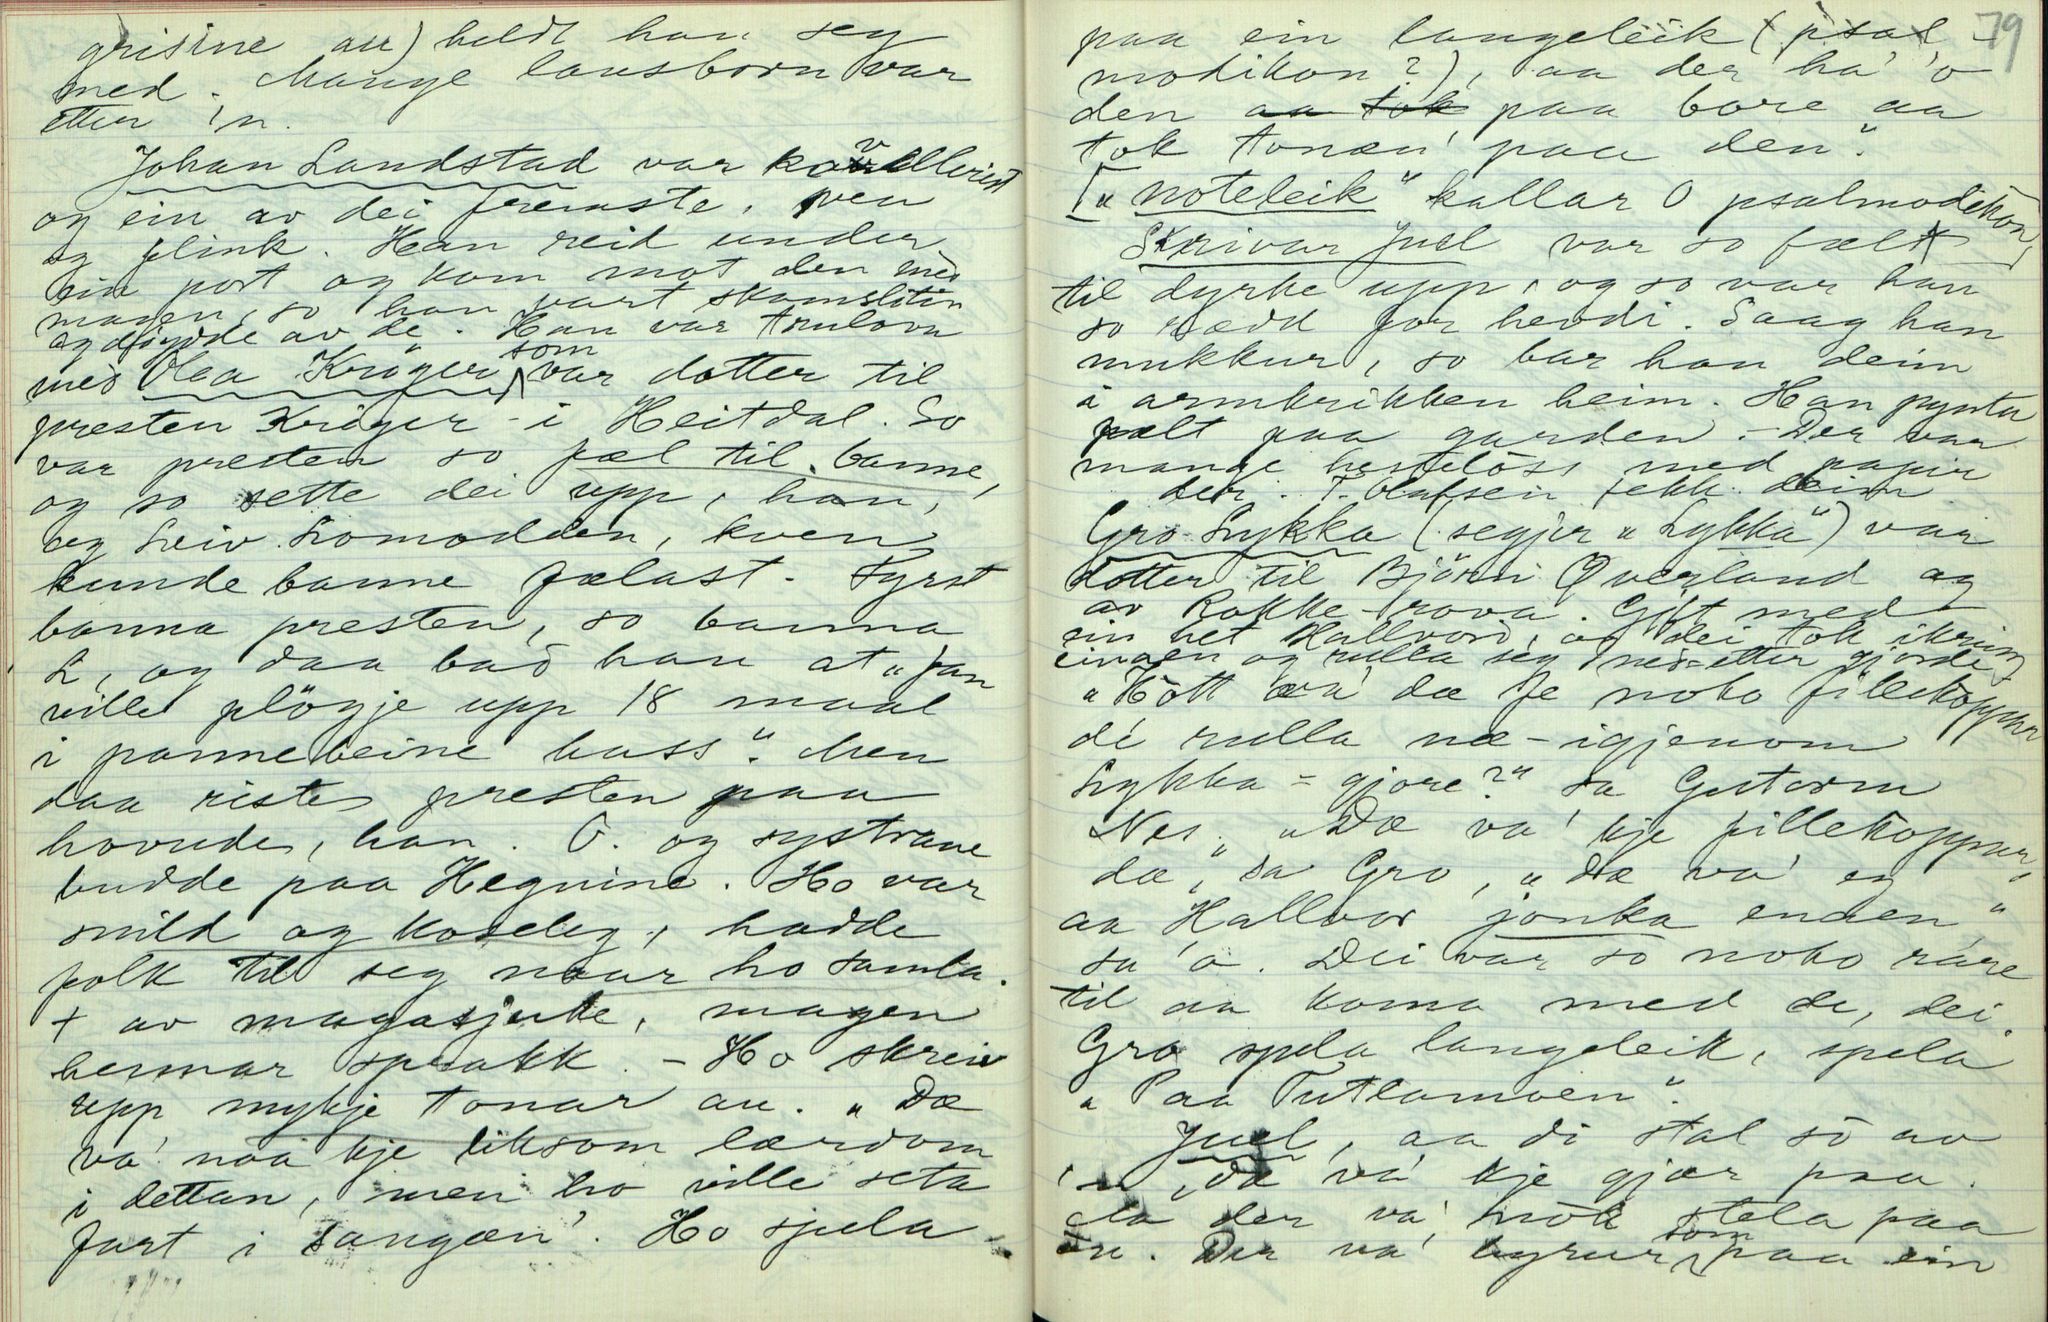 grisine au) heldt han seg
med. Mange lausborn var
etter 'n.
Johan Landstad var kavallerist
og ein av dei fremste, ven
og flink. Han reid under
ein port og kom mot den med
magen, so han vart skamslitin
og døydde av de. Han var trulova
med Olea Krøger som var dotter til
presten Krøger i Heitdal. So
var presten so fæl til banne,
og so sette dei upp, han,
og Leiv Lomodden, kven
kunde banne fælast. Fyrst
banna presten, so banna
L, og daa bad han at "fan
ville pløgje upp 18 maal
i pannebeine hass". Men
daa riste presten paa
hovude, han. O. og systrane
budde paa Hegnine. Ho var
snild og koseleg, hadde
folk til seg naar ho samla.
+ av magasjuke, magen
hennar sprakk. - Ho skreiv
upp mykje tonar au. "Dæ
va' naa kje liksom lærdom
i dettan, men ho ville seta
fart i sangæn'. Ho spela
79
paa ein langeleik (psal-
modikon?), aa der ha' o
den aa tok paa bore aa
tok tonæn' paa den".
["noteleik" kallar O psalmodikon]
Skrivar Juel var so fælt
til dyrke upp, og so var han
so rædd for hevdi. Saag han
mukkur, so bar han deim
i armkrikken heim. Han pynta
fælt paa garden. - Der var
mange hestelöss med papir
der. T. Olafsen fekk deim
Gro Lykka (segjer "Lykka") var
dotter til Björn Øverland og
av Rokke-rova. Gift med
ein het Hallvord, og dei tok ikring
einann og rulla seg ned-etter gjorde
"Hott va' dæ fe noko fillekoppar
di rulla næ-igjenom
Lykka-gjore?" sa Gutorm
Nes. "Dæ va' kje fillekoppar,
dæ," sa Gro, "dæ va' eg
aa Hallvor jonka enden,"
sa 'o. Dei var so noko rare
til aa koma med de, dei.
Gro spela langeleik, spela
"Paa Tutlamoen".
Juel, aa di stal so av
'n, dæ va' kje gjær paa.
da der va' nok stela paa
'n. Der va' byrur som paa ein